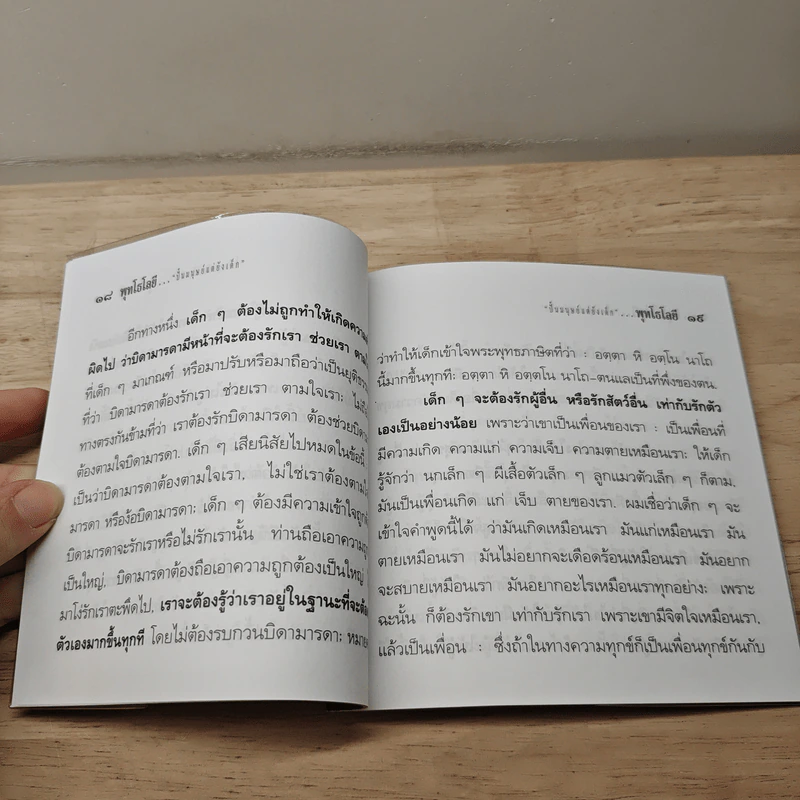 ๑๘ พุทโธโลยี...."ปั้นมนุษย์แต่ยังเด็ก"
อีกทางหนึ่ง เด็ก ๆ ต้องไม่ถูกทำให้เกิดความ
ผิดไป ว่าบิดามารดามีหน้าที่จะต้องรักเรา ช่วยเรา ตาม
ที่เด็ก ๆ มาเกณฑ์ หรือมาปรับหรือมาถือว่าเป็นยุติธรรม
ที่ว่า บิดามารดาต้องรักเรา ช่วยเรา ตามใจเรา;
ทางตรงกันข้ามที่ว่า เราต้องรักบิดามารดา ต้องช่วยบิดา
ต้องตามใจบิดามารดา. เด็ก ๆ เสียนิสัยไปหมดในข้อนี้
เป็นว่าบิดามารดาต้องตามใจเรา, ไม่ใช่เราต้องตาม
มารดา หรือง้อบิดามารดา; เด็ก ๆ ต้องมีความเข้าใจถูก
บิดามารดาจะรักเราหรือไม่รักเรานั้น ท่านถือเอาความถูก
เป็นใหญ่. บิดามารดาต้องถือเอาความถูกต้องเป็นใหญ่
มาโง่รักเราตะพึดไป. เราจะต้องรู้ว่าเราอยู่ในฐานะที่จะต้อง
ตัวเองมากขึ้นทุกที โดยไม่ต้องรบกวนบิดามารดา: หมาย
"ปั้นมนุษย์แต่ยังเด็ก"....พุทโธโลยี ๑๙
ว่าทำให้เด็กเข้าใจพระพุทธภาษิตที่ว่า : อตฺตา หิ อตฺโน นาโถ
นี้มากขึ้นทุกที: อตฺตา หิ อตฺตโน นาโถ-ตนแลเป็นที่พึ่งของตน.
เด็ก ๆ จะต้องรักผู้อื่น หรือรักสัตว์อื่น เท่ากับรักตัว
เองเป็นอย่างน้อย เพราะว่าเขาเป็นเพื่อนของเรา : เป็นเพื่อนที่
มีความเกิด ความแก่ ความเจ็บ ความตายเหมือนเรา: ให้เด็ก
รู้จักว่า นกเล็กๆ ผีเสื้อตัวเล็กๆ ลูกแมวตัวเล็กๆ ก็ตาม.
มันเป็นเพื่อนเกิด แก่ เจ็บ ตายของเรา. ผมเชื่อว่าเด็ก ๆ จะ
เข้าใจคำพูดนี้ได้ ว่ามันเกิดเหมือนเรา มันแก่เหมือนเรา มัน
ตายเหมือนเรา มันไม่อยากจะเดือดร้อนเหมือนเรา มันอยาก
จะสบายเหมือนเรา มันอยากอะไรเหมือนเราทุกอย่าง; เพราะ
ฉะนั้น ก็ต้องรักเขา เท่ากับรักเรา เพราะเขามีจิตใจเหมือนเรา.
แล้วเป็นเพื่อน : ซึ่งถ้าในทางความทุกข์ก็เป็นเพื่อนทุกข์กันกับ